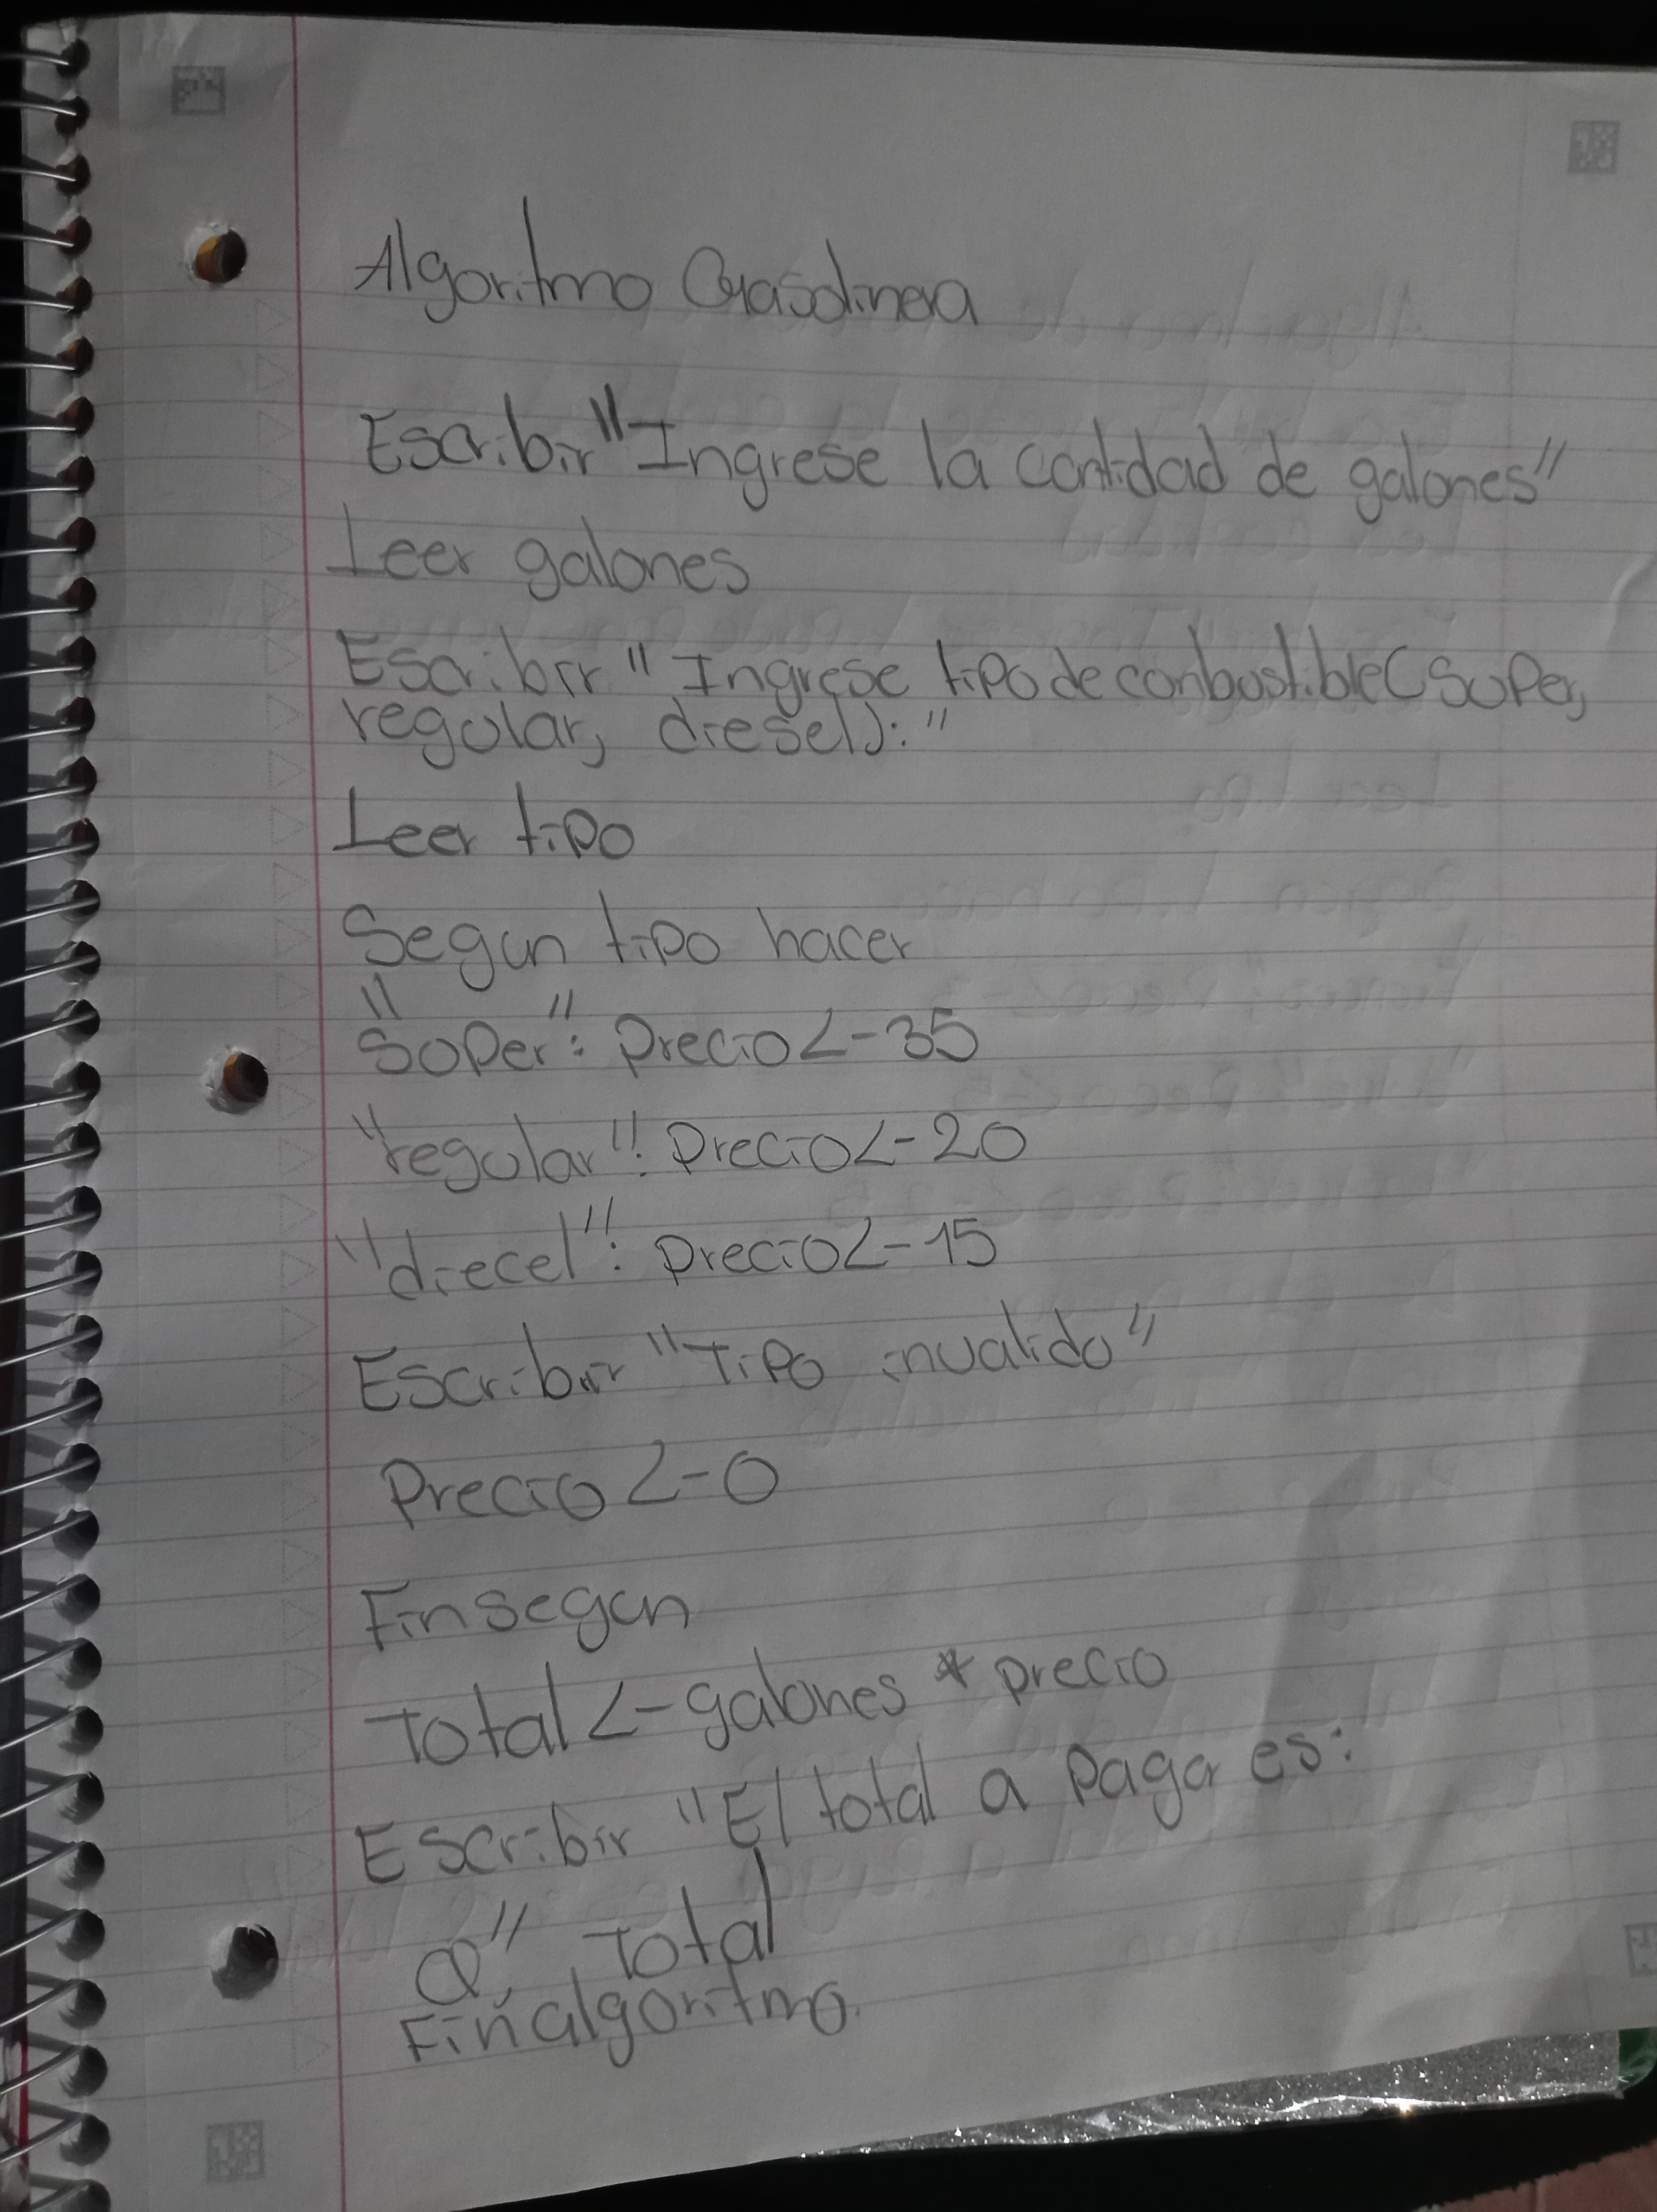 Algoritmo Gasolinera
Escribir "Ingrese la cantidad de galones"
Leer galones
Escribir "Ingrese tipo de conbustible(super,
regular, diesel):"
Leer tipo
Segun tipo hacer
"super": precio<-35
"regular": precio<-20
"diecel": precio<-15
Escribir "Tipo invalido"
Precio<-0
Finsegun
Total<-galones * precio
Escribir "El total a paga es:
Q", Total
Finalgoritmo.